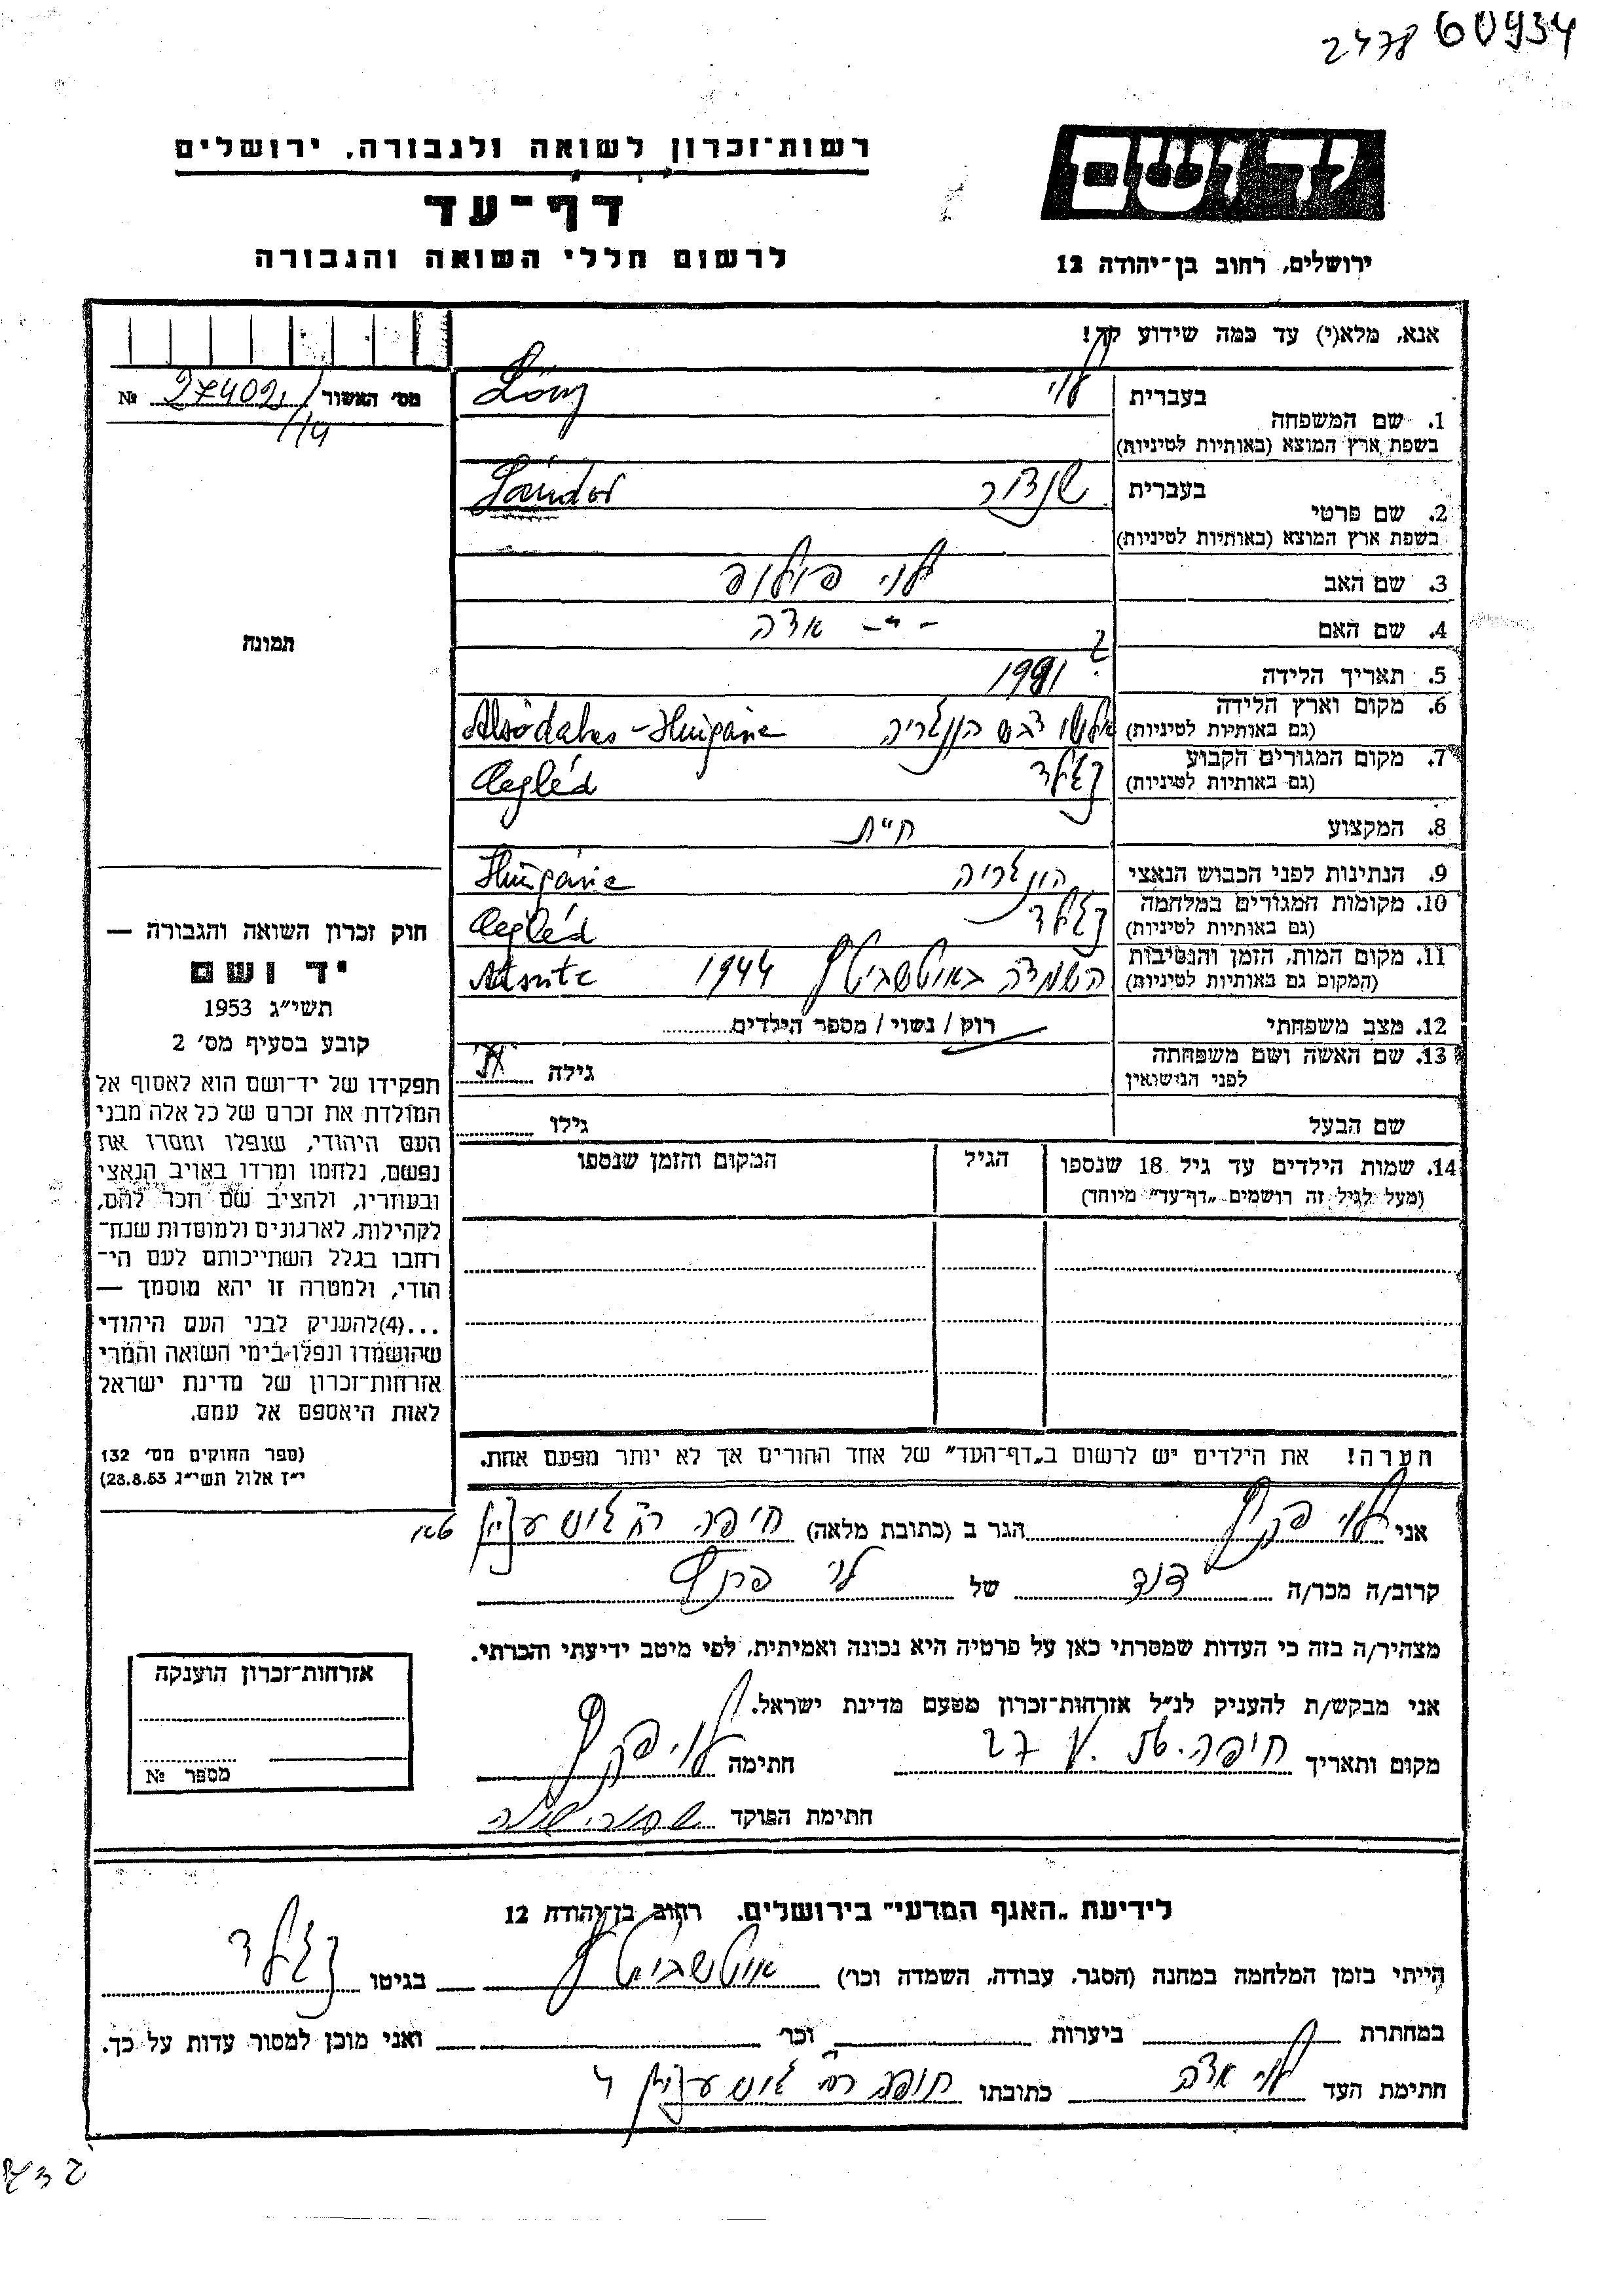 60934
2478
יד ושם
ירושלים, רחוב בן־יהודה 12
רשות־זכרון לשואה ולגבורה, ירושלים
דף־עד
לרשום חללי השואה והגבורה
אנא, מלא(י) עד כמה שידוע לך!
מס' האשור 27402 №
114
1. שם המשפחה
בעברית לוי
בשפת ארץ המוצא (באותיות לטיניות) Löwy
2. שם פרטי
בעברית שנדור
בשפת ארץ המוצא (באותיות לטיניות) Sándor
3. שם האב לוי פיליפ
4. שם האם -"- אדה
5. תאריך הלידה ?
6. מקום וארץ הלידה הונגריה Alsódabas - Hungárie
(גם באותיות לטיניות)
7. מקום המגורים הקבוע צגלד Cegléd
(גם באותיות לטיניות)
8. המקצוע חייט
9. הנתינות לפני הכבוש הנאצי הונגריה Hungárie
10. מקומות המגורים במלחמה צגלד Cegléd
(גם באותיות לטיניות)
11. מקום המות, הזמן והנסיבות השמדה באוישביץ 1944
(המקום גם באותיות לטיניות)
12. מצב משפחתי רוק / נשוי / מספר הילדים
13. שם האשה ושם משפחתה
לפני הנישואין
גילה
שם הבעל
גילו
14. שמות הילדים עד גיל 18 שנספו
(מעל לגיל זה רושמים „דף־עד" מיוחד)
הגיל
המקום והזמן שנספו
תמונה
חוק זכרון השואה והגבורה —
יד ושם
תשי"ג 1953
קובע בסעיף מס' 2
תפקידו של יד־ושם הוא לאסוף אל
המולדת את זכרם של כל אלה מבני
העם היהודי, שנפלו ומסרו את
נפשם, נלחמו ומרדו באויב הנאצי
ובעוזריו, ולהציב שם וזכר להם,
לקהילות, לארגונים ולמוסדות שנח־
רבו בגלל השתייכותם לעם הי־
הודי, ולמטרה זו יהא מוסמך —
...(4)להעניק לבני העם היהודי
שהושמדו ונפלו בימי השואה והמרי
אזרחות־זכרון של מדינת ישראל
לאות היאספם אל עמם.
(ספר החוקים מס' 132
י"ז אלול תשי"ג 28.8.53)
הערה! את הילדים יש לרשום ב„דף־העד" של אחד ההורים אך לא יותר מפעם אחת.
אני לוי הגר ב (כתובת מלאה) חיפה רח גוש עציון
קרוב/ה מכר/ה דוד של לוי
מצהיר/ה בזה כי העדות שמסרתי כאן על פרטיה היא נכונה ואמיתית, לפי מיטב ידיעתי והכרתי.
אני מבקש/ת להעניק לנ"ל אזרחות־זכרון מטעם מדינת ישראל.
מקום ותאריך חיפה חתימה לוי
חתימת הפוקד
אזרחות־זכרון הוענקה
מספר №
לידיעת „האגף המדעי" בירושלים, רחוב בן־יהודה 12
הייתי בזמן המלחמה במחנה (הסגר, עבודה, השמדה וכו') אוישביץ בגיטו צגלד
במחתרת ביערות וכו' ואני מוכן למסור עדות על כך.
חתימת העד לוי אדה כתובתו חיפה רח גוש עציון